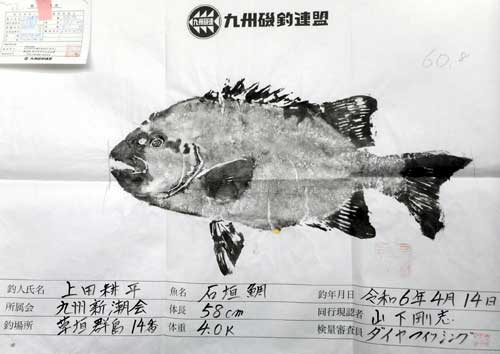 九州磯釣連盟
60.8
釣人氏名 上田耕平 魚名 石垣鯛 釣年月日 令和6年4月14日
所属会 九州新潮会 体長 58cm 同行現認者 山下剛志
釣場所 草垣群島14番 体重 4.0K 検量審査員 ダイヤフイッシング